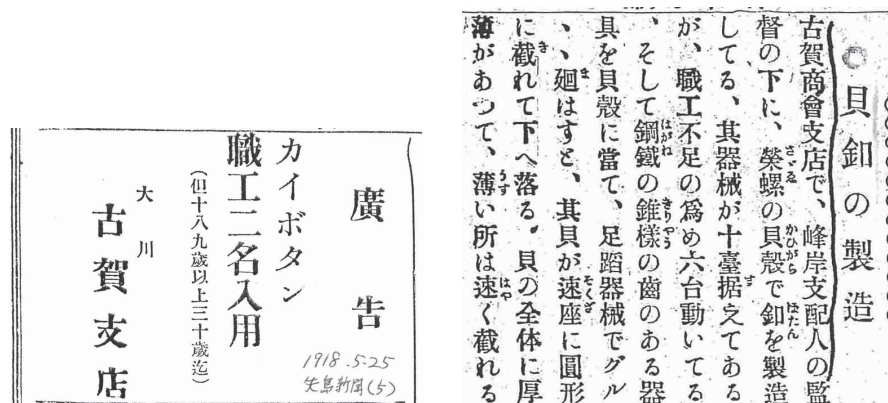 ◎貝釦の製造
古賀商會支店で、峰岸支配人の監
督の下に、榮螺の貝殻で釦を製造
してる、其器械が十臺据えてある
が、職工不足の爲め六台動いてる
、そして鋼鐵の錐樣の齒のある器
具を貝殻に當て、足蹈器械でグル
、、廻はすと、其貝が速座に圓形
に截れて下へ落る。貝の全体に厚
薄があつて、薄い所は速く截れる
廣告
カイボタン
職工二名入用
(但十八九歲以上三十歲迄)
大川
古賀支店
1918.5-25
(5)